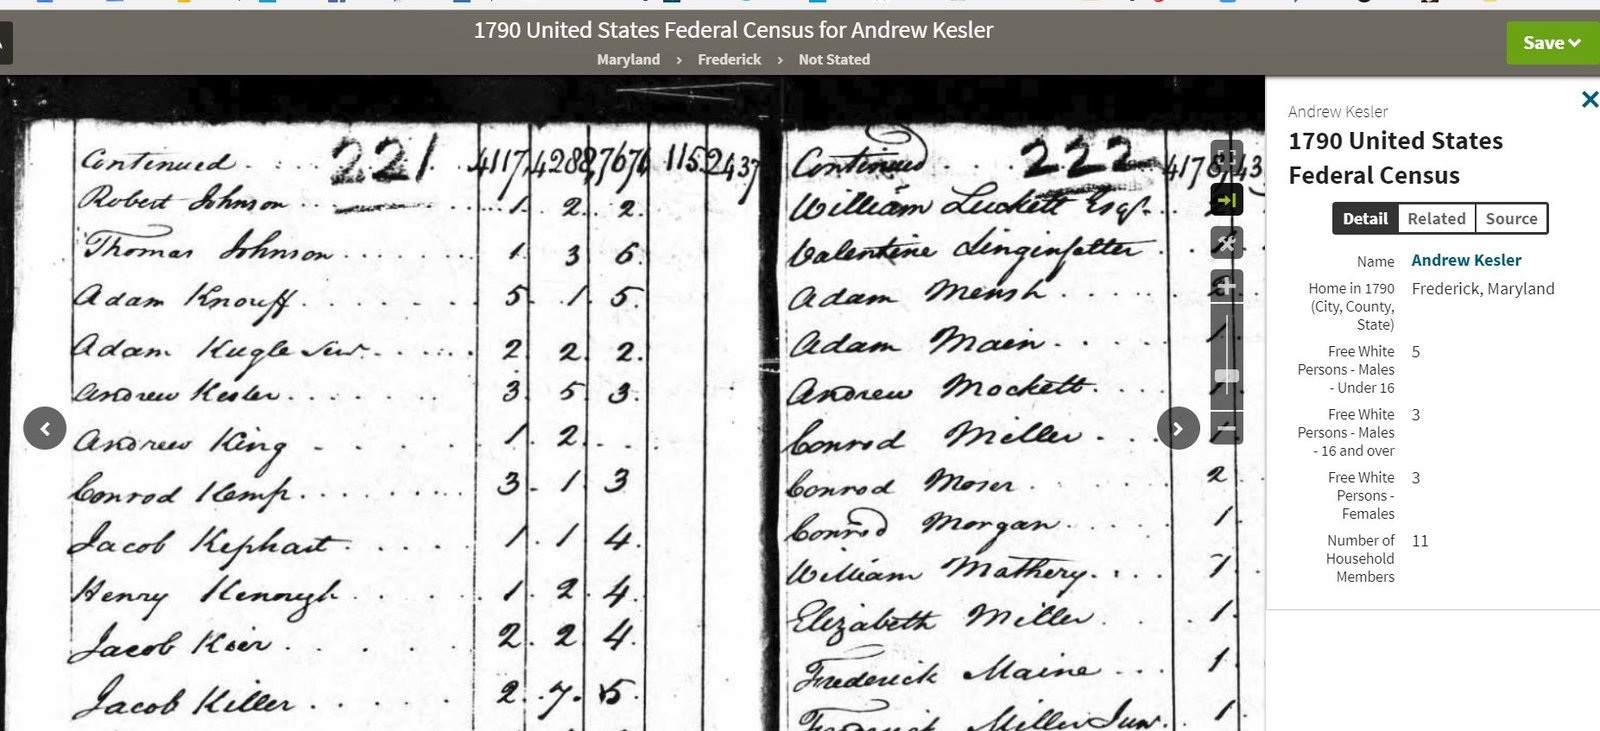 1790 United States Federal Census for Andrew Kesler
Maryland › Frederick › Not Stated
Save
Continued . . : . 221 4117 4288 7676 115 2437
Robert Johnson 1 2 2
Thomas Johnson 1 3 6
Adam Knouff 5 1 5
Adam Kugle 2 2 2
Andrew Kesler 3 5 3
Andrew King 1 2
Conrod Kemp 3 1 3
Jacob Kephart 1 1 4
Henry 1 2 4
Jacob 2 2 4
Jacob Killer 2 7 5
Continued 222 4178 43
William Luckett Esqr.
Valentine Linginfelter
Adam Mensh
Adam Main 1
Andrew Mockett 1
Conrod Miller 1
Conrod Moser 2
Conrod Morgan 1
William Mathery 7
Elizabeth Miller 1
Frederick Maine 1
Frederick Miller Junr. 1
Andrew Kesler
1790 United States
Federal Census
Detail Related Source
Name Andrew Kesler
Home in 1790 Frederick, Maryland
(City, County,
State)
Free White 5
Persons - Males
- Under 16
Free White 3
Persons - Males
- 16 and over
Free White 3
Persons -
Females
Number of 11
Household
Members